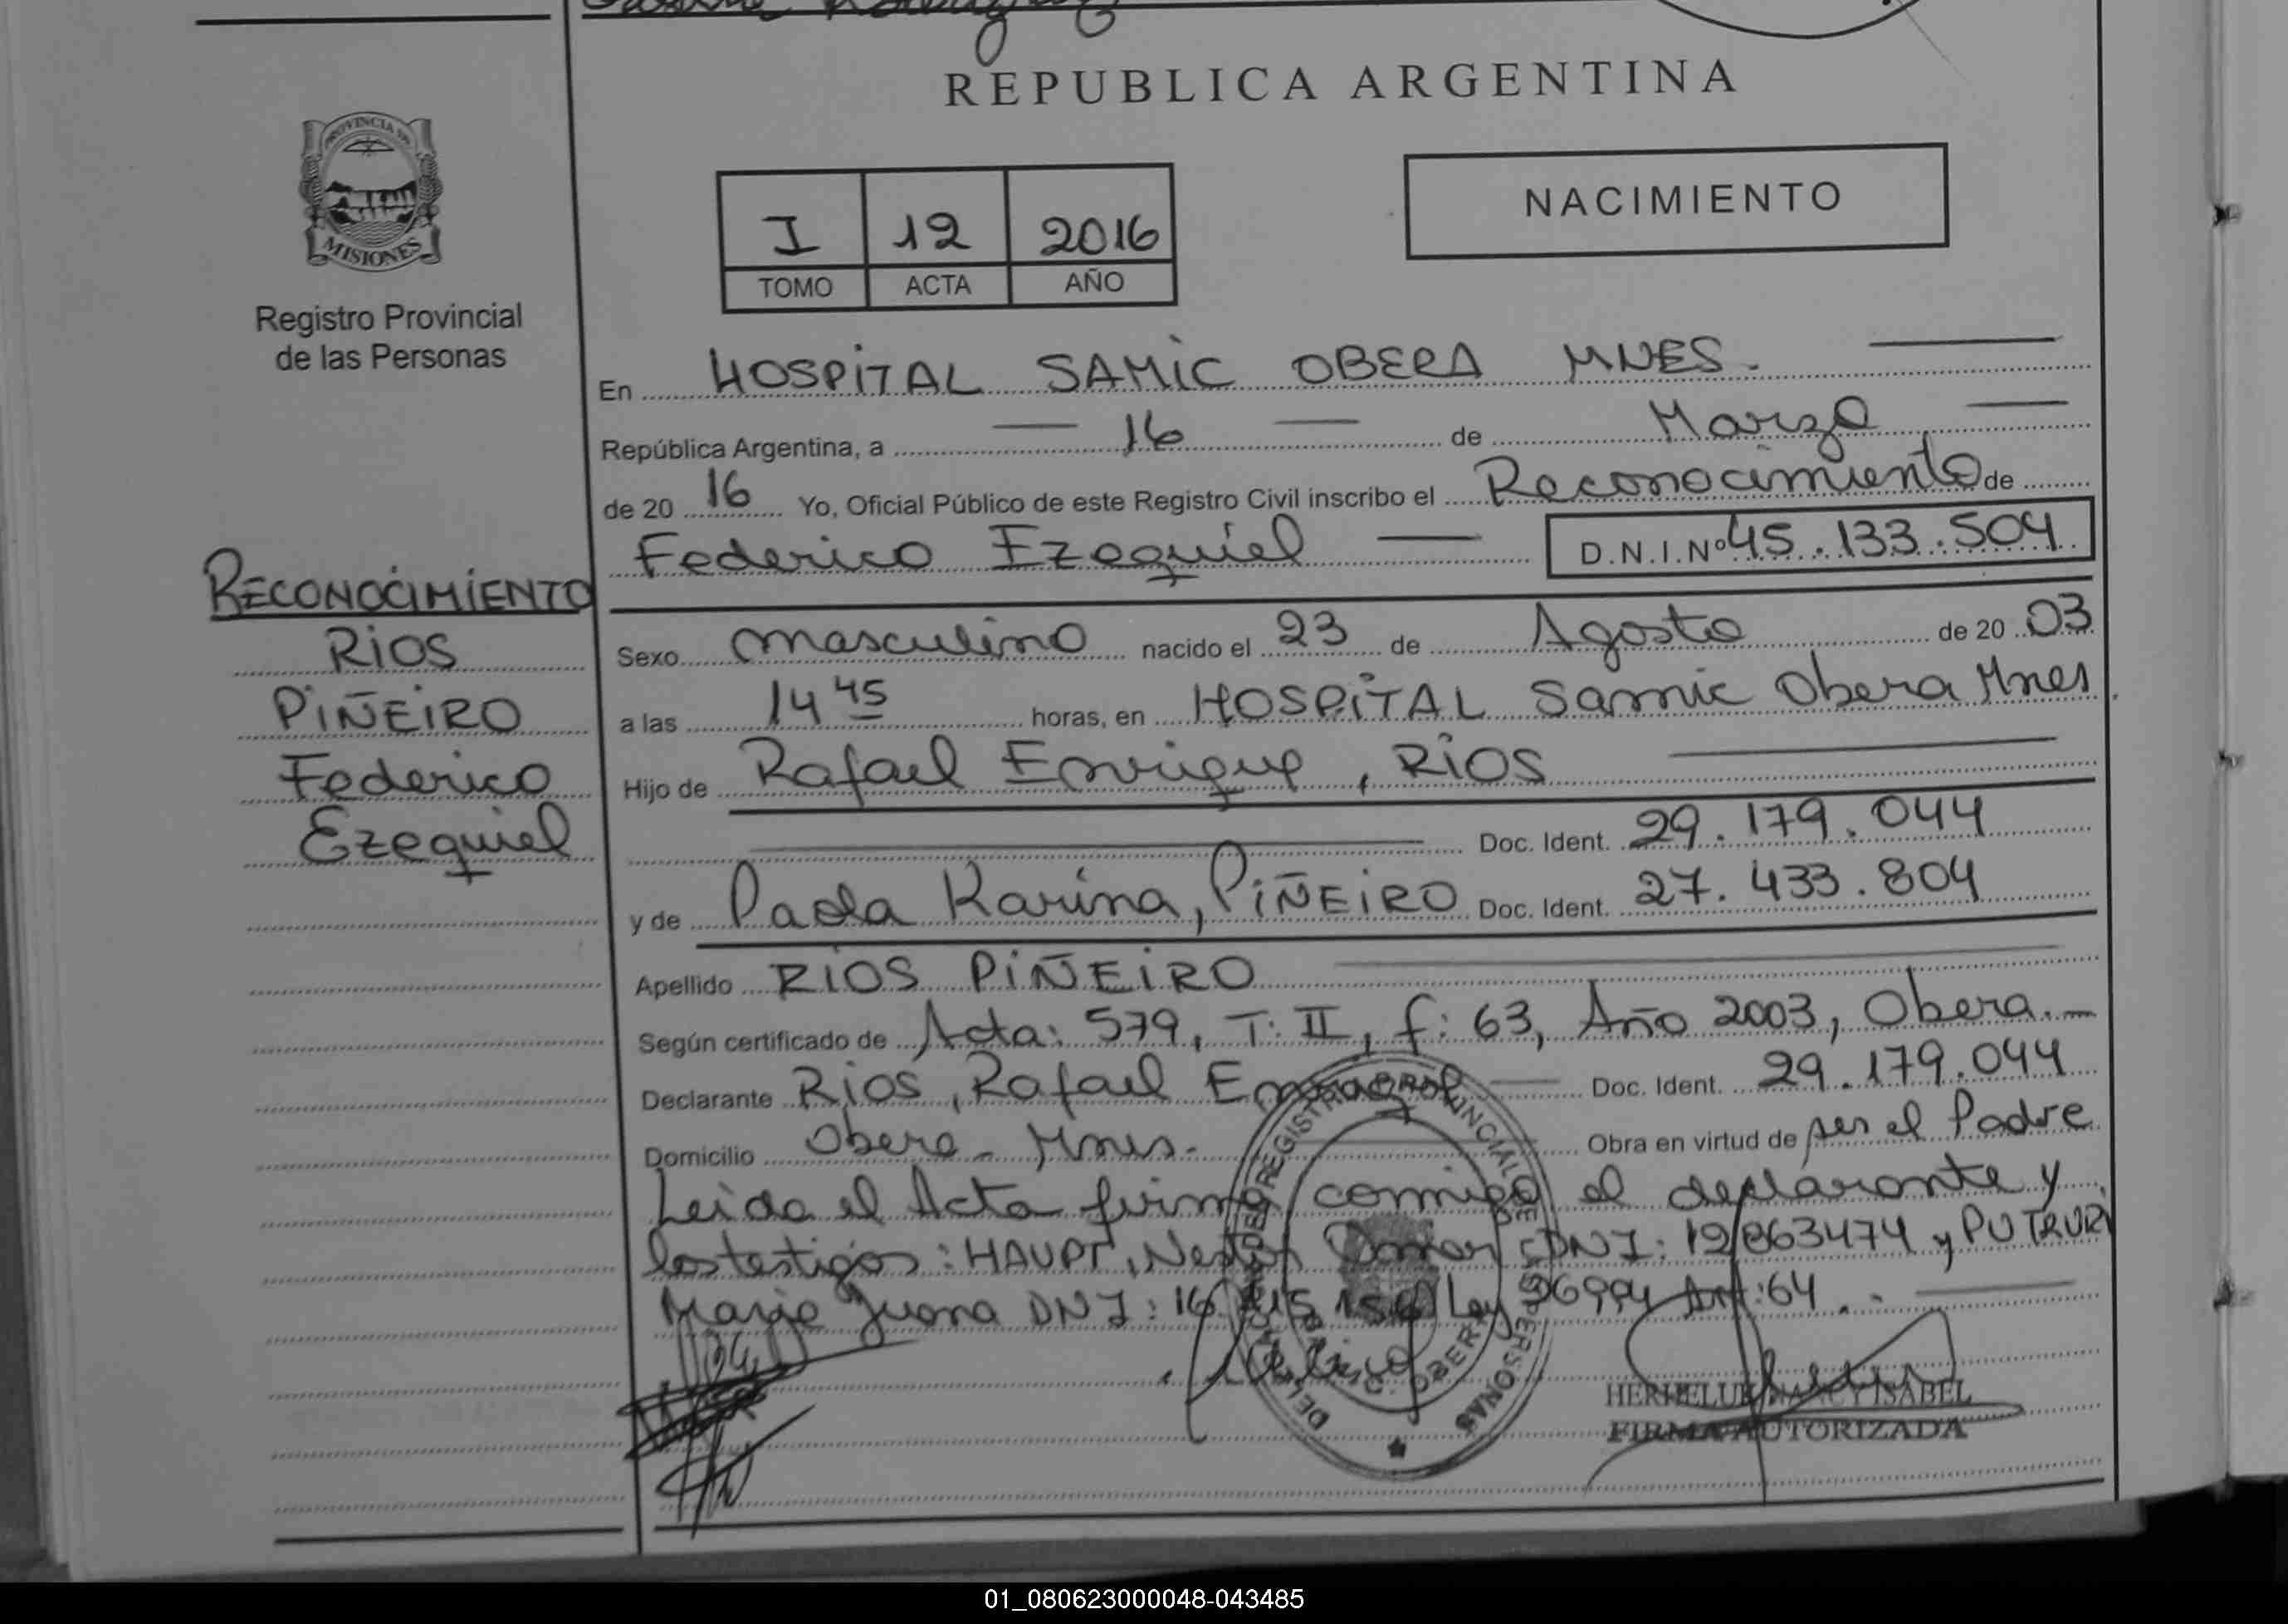 REPUBLICA ARGENTINA
PROVINCIA DE
MISIONES
Registro Provincial
de las Personas
I 12 2016
TOMO ACTA AÑO
NACIMIENTO
En HOSPITAL SAMIC OBERA MNES.
República Argentina, a 16 de Marzo
de 20 16 Yo, Oficial Público de este Registro Civil inscribo el Reconocimiento de
Federico Ezequiel D.N.I.Nº 45.133.504
RECONOCIMIENTO
RIOS
PIÑEIRO
Federico
Ezequiel
Sexo masculino nacido el 23 de Agosto de 20 03
a las 14 45 horas, en HOSPITAL Samic Obera Mnes
Hijo de Rafael Enrique, RIOS
Doc. Ident. 29.179.044
y de Paola Karina, PIÑEIRO Doc. Ident. 27.433.804
Apellido RIOS PIÑEIRO
Según certificado de Acta: 579, T: II, f: 63, Año 2003, Obera.
Declarante Rios, Rafael Enrique Doc. Ident. 29.179.044
Domicilio Obera - Mnes. Obra en virtud de ser el Padre
Leida el Acta firma conmigo el declarante y
los testigos: HAUPT, Nestor Omar DNI: y PUTRUR
Maria Juana DNI: 16 Ley 26994 Art: 64.
REGISTRO PROVINCIAL DE LAS PERSONAS
OBERA
HERMELUK NANCY ISABEL
FIRMA AUTORIZADA
01_080623000048-043485